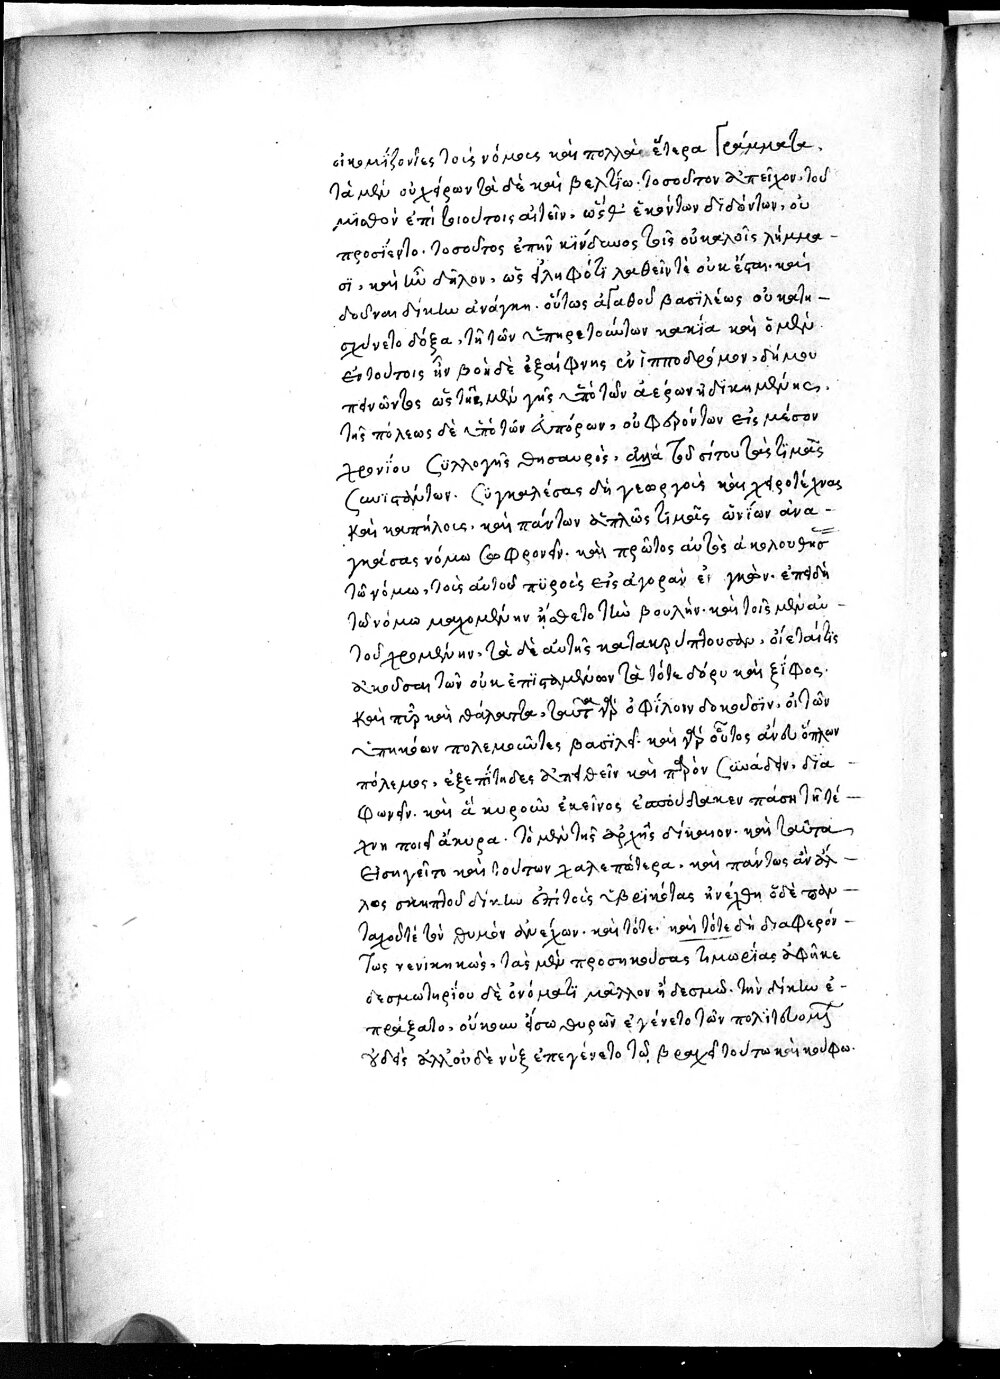 οἰκομίζοντες τοῖς νόμοις καὶ πολλὰ ἕτερα γράμματα,
τὰ μὲν οὐ χείρων τὰ δὲ καὶ βελτίω. τοσοῦτον ἀπεῖχον, τοῦ
μισθὸν ἐπὶ τούτοις αἰτεῖν, ὥσθ' ἑκόντων διδόντων, οὐ
προσίεντο. τοσοῦτος ἐπῆν κίνδυνος τοῖς οὐ καλοῖς λήμμα-
σι, καὶ ἦν δῆλον, ὡς εἰληφότι λαθεῖν τὲ οὐκ ἔσται. καὶ
δοῦναι δίκην ἀνάγκη. οὕτως ἀγαθοῦ βασιλέως οὐ κατη-
σχύνετο δόξα, τῇ τῶν ὑπηρετούντων κακία καὶ ὁ μὲν
ἐν τούτοις ἦν βοὴ δὲ ἐξαίφνης ἐν ἱπποδρόμου, δήμου
πεινῶντος ὡς τῆς μὲν γῆς ὑπὸ τῶν ἀέρων ἠδικημένης,
τῆς πόλεως δὲ ὑπὸ τῶν εὐπόρων, οὐ φερόντων εἰς μέσον
χρονίου συλλογῆς θησαυρὸς, ἀλλὰ τοῦ σίτου τὰς τιμὰς
συνιστάντων. συγκαλέσας δὴ γεωργοὺς καὶ χειροτέχνας
καὶ καπήλοις, καὶ πάντων ἁπλῶς τιμὰς ὠνίων ἀνα-
γκάσας νόμω σωφρονεῖν. καὶ πρῶτος αὐτὸς ἀκολουθήσ
τῶ νόμω, τοὺς αὐτοῦ πυροὺς εἰς ἀγορὰν εἰ γκὼν. ἐπειδὴ
τῶ νόμω μαχομένην ἤσθετο τὴν βουλὴν. καὶ τοῖς μὲν αὐ-
τοῦ χρομένην, τὰ δὲ αὐτῆς κατακρύπτουσαν, οἴεταί τις
ἀκοῦσαι τῶν οὐκ ἐπισταμένων τὰ τότε δόρυ καὶ ξίφος.
καὶ πῦρ καὶ θάλαττα, ταῦτα γὰρ ὀφίλοιν δοκοῦσιν, οἱ τῶν
ὑπηκόων πολεμοῦντες βασιλεῖ. καὶ γὰρ οὗτος ἄνευ ὅπλων
πόλεμος, ἐξεπίτηδες ἀπειθεῖν καὶ παρὸν συνάδειν, δια
φωνεῖν. καὶ ἃ κυροῦν ἐκεῖνος ἐσπούδακεν πάση τῆ τέ-
χνη ποιεῖ ἄκυρα. τὸ μὲν τῆς ἀρχῆς δίκαιον. καὶ ταῦτα
εἰσηγεῖτο καὶ τούτων χαλεπώτερα, καὶ πάντως ἂν ἄλ-
λος σκηπτοῦ δίκην ἐπὶ τοὺς ὑβρικότας ἠνέχθη ὅδὲ παν-
ταχοῦ τὲ τὸν θυμὸν ἀνέχων. καὶ τότε. καὶ τότε δὴ διαφερόν-
τως νενικηκὼς, τὰς μὲν προσηκούσας τιμωρίας ἀφῆκε
δεσμωτηρίου δὲ ὀνόματι μᾶλλον ἢ δεσμῶ. τὴν δίκην ἐ-
πράξατο, οὔκουν εἴσω θυρῶν ἐγένετο τῶν πολιτευομ
οὐδεὶς ἀλλ' οὐδὲ νὺξ ἐπεγένετο τῶ βραχεῖ τούτω καὶ κούφω.